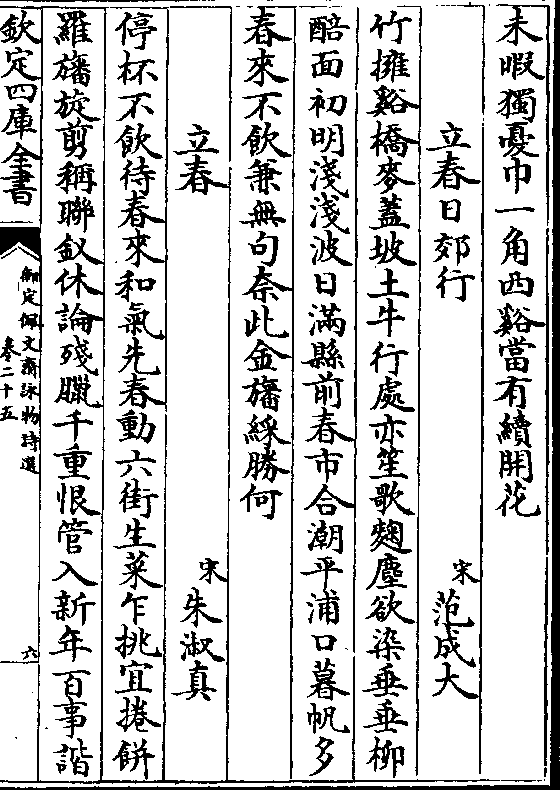 未暇獨憂巾一角西谿當有續開花
立春日郊行 宋 范成大
竹擁谿橋麥蓋坡土牛行處亦笙歌麴塵欲染垂垂柳
醅面初明淺淺波日滿縣前春市合潮平浦口暮帆多
春來不飲兼無句奈此金旛綵勝何
立春 宋 朱淑真
停杯不飲待春來和氣先春動六街生菜乍挑宜捲餅
羅旛旋剪稱聯釵休論殘臘千重恨管入新年百事諧
欽定四庫全書
御定佩文齋詠物詩選
卷二十五
六